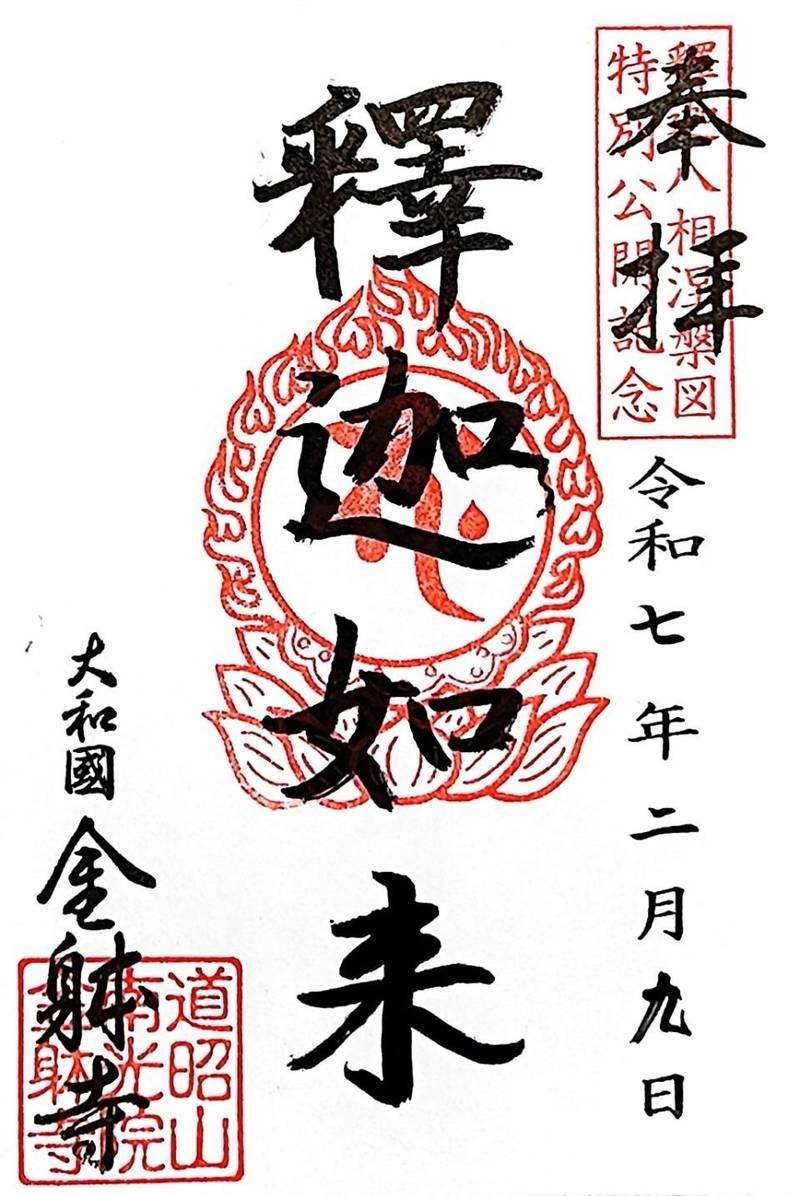 奉拝
釋迦八相涅槃図
特別公開記念
令和七年二月九日
釋迦如来
大和國
金躰寺
道昭山
南光院
金躰寺